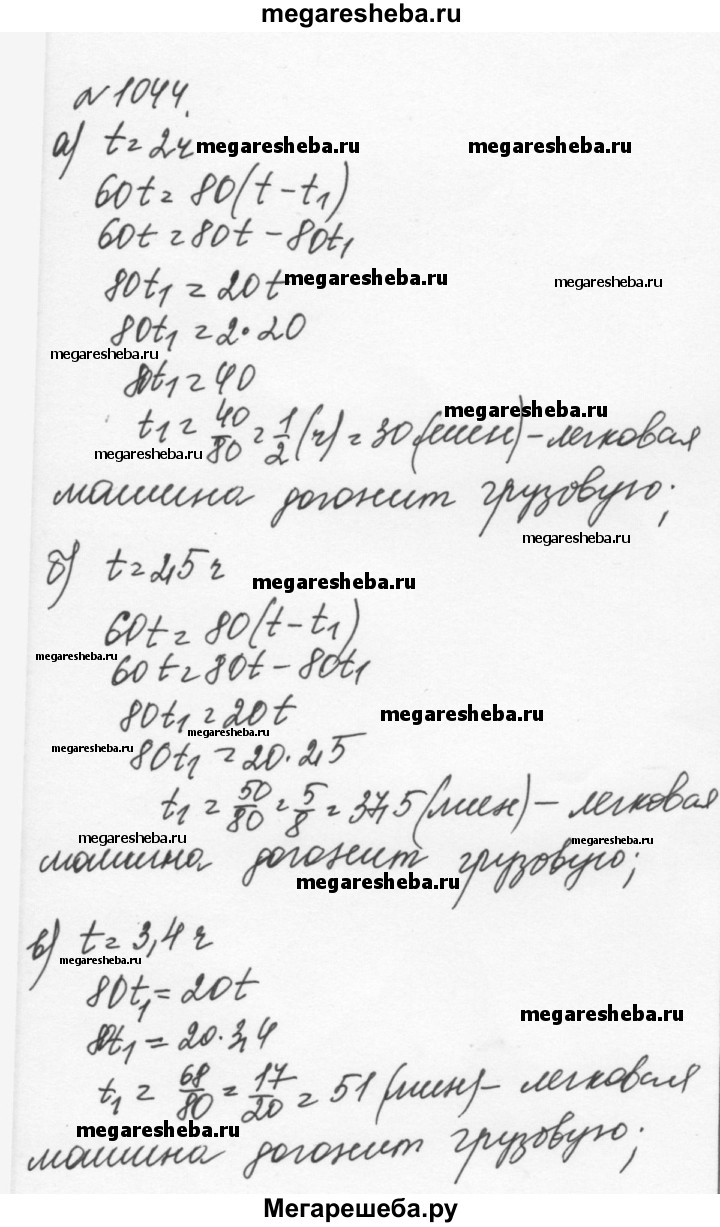 megaresheba.ru
№1044.
а) t=2ч megaresheba.ru megaresheba.ru
60t=80(t-t₁)
60t=80t-80t₁
80t₁=20t megaresheba.ru megaresheba.ru
80t₁=2·20
megaresheba.ru
80t₁=40
megaresheba.ru
t₁=40/80=1/2(ч)=30(мин)-легковая
megaresheba.ru
машина догонит грузовую;
megaresheba.ru
б) t=2,5ч megaresheba.ru
60t=80(t-t₁)
megaresheba.ru
60t=80t-80t₁
80t₁=20t megaresheba.ru
megaresheba.ru megaresheba.ru
80t₁=20·2,5
t₁=50/80=5/8=37,5(мин)-легковая
megaresheba.ru megaresheba.ru
машина догонит грузовую;
megaresheba.ru
в) t=3,4ч
megaresheba.ru
80t₁=20t
megaresheba.ru
80t₁=20·3,4
t₁=68/80=17/20=51(мин)-легковая
megaresheba.ru
машина догонит грузовую;
Мегарешеба.ру